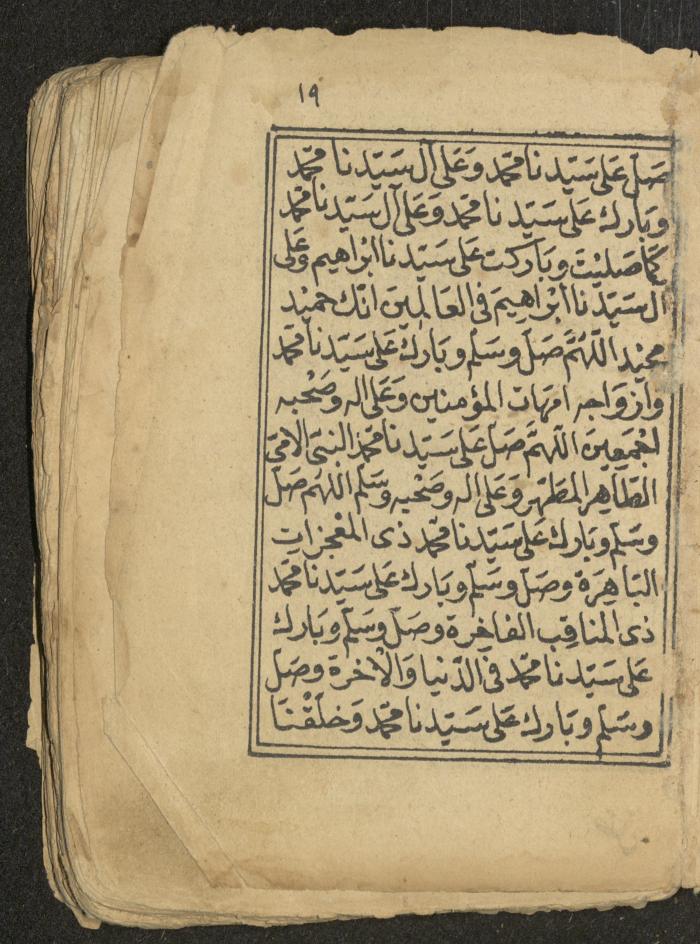 ١٩
صَلِّ عَلى سَيّدنا محمّد وَعَلى آل سَيّدنا محمّد
وبَارك عَلى سَيّدنا محمّد وَعَلى آل سَيّدنا محمّد
كمَا صَليْتَ وبَاركت عَلى سَيّدنا ابْراهيم وَعَلى
آل سَيّدنا ابْراهِيمَ فى العَالمينَ انّك حَميْد
مجيْد اللّهُمَّ صَلّ وسَلّم وبَارك عَلى سَيّدنا محمّد
وازوَاجه امّهات المؤمنين وَعَلى اله وصَحْبه
اجْمَعِينَ اللّهمَّ صَلّ عَلى سَيّدنا محمّد النبىّ الامىّ
الطّاهِر المطهّر وَعَلى اله وصَحْبه وسَلّم اللهُم صَلّ
وسَلّم وبَارك عَلى سَيّدنا محمّد ذى المعْجزاتِ
البَاهِرَة وصَلّ وسَلّم وبَارك عَلى سَيّدنا محمّد
ذى المناقِب الفاخِرة وصَلّ وسَلّم وبَارك
عَلى سَيّدنا محمّد فى الدّنيا وَالْاخرة وصَلّ
وسَلّم وبَارك عَلى سَيّدنا محمّد وَخلّقْنَا